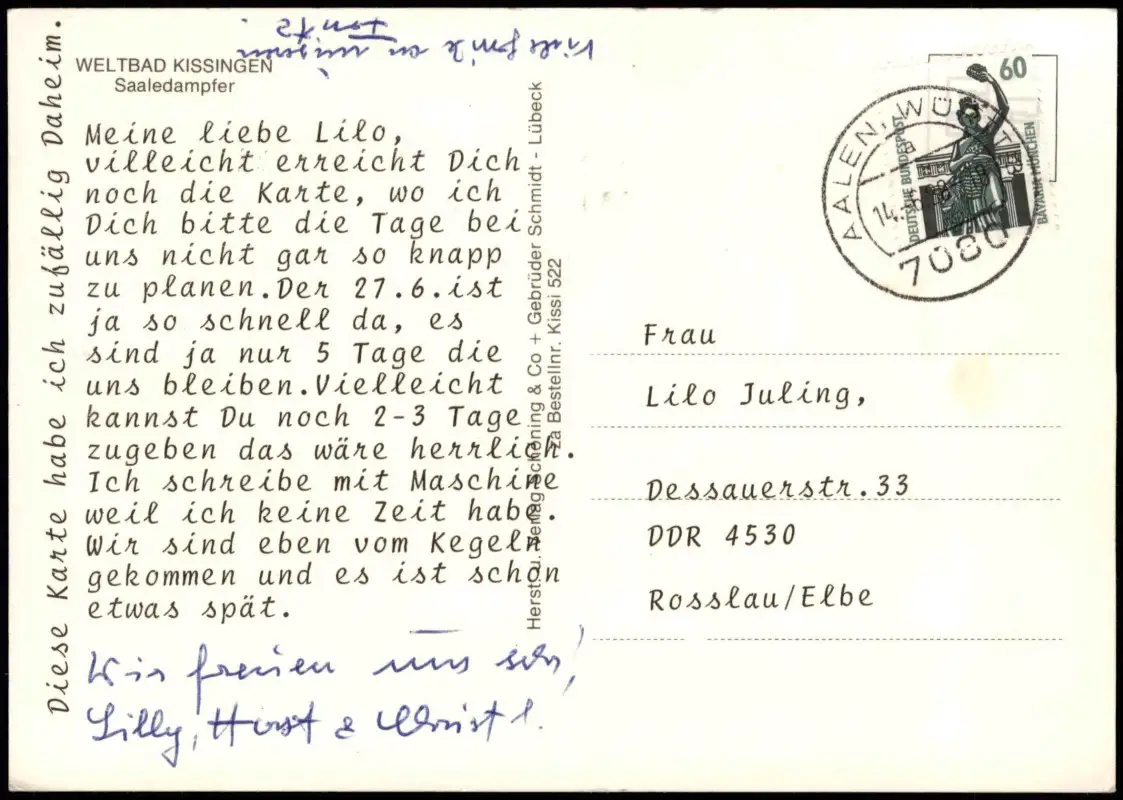 WELTBAD KISSINGEN
Saaledampfer
Meine liebe Lilo,
villeicht erreicht Dich
noch die Karte, wo ich
Dich bitte die Tage bei
uns nicht gar so knapp
zu planen.Der 27.6.ist
ja so schnell da, es
sind ja nur 5 Tage die
uns bleiben.Vielleicht
kannst Du noch 2-3 Tage
zugeben das wäre herrlich.
Ich schreibe mit Maschine
weil ich keine Zeit habe.
Wir sind eben vom Kegeln
gekommen und es ist schon
etwas spät.
Wir freuen uns sehr!
Lilly, Horst & Christl.
Diese Karte habe ich zufällig Daheim.
Viele Grüße an unseren
Herst. u. Verlag Schöning & Co + Gebrüder Schmidt - Lübeck
za Bestellnr. Kissi 522
60
DEUTSCHE BUNDESPOST
BAVARIA MÜNCHEN
AALEN, WÜRTT
14.-6.
7080
Frau
Lilo Juling,
Dessauerstr.33
DDR 4530
Rosslau/Elbe